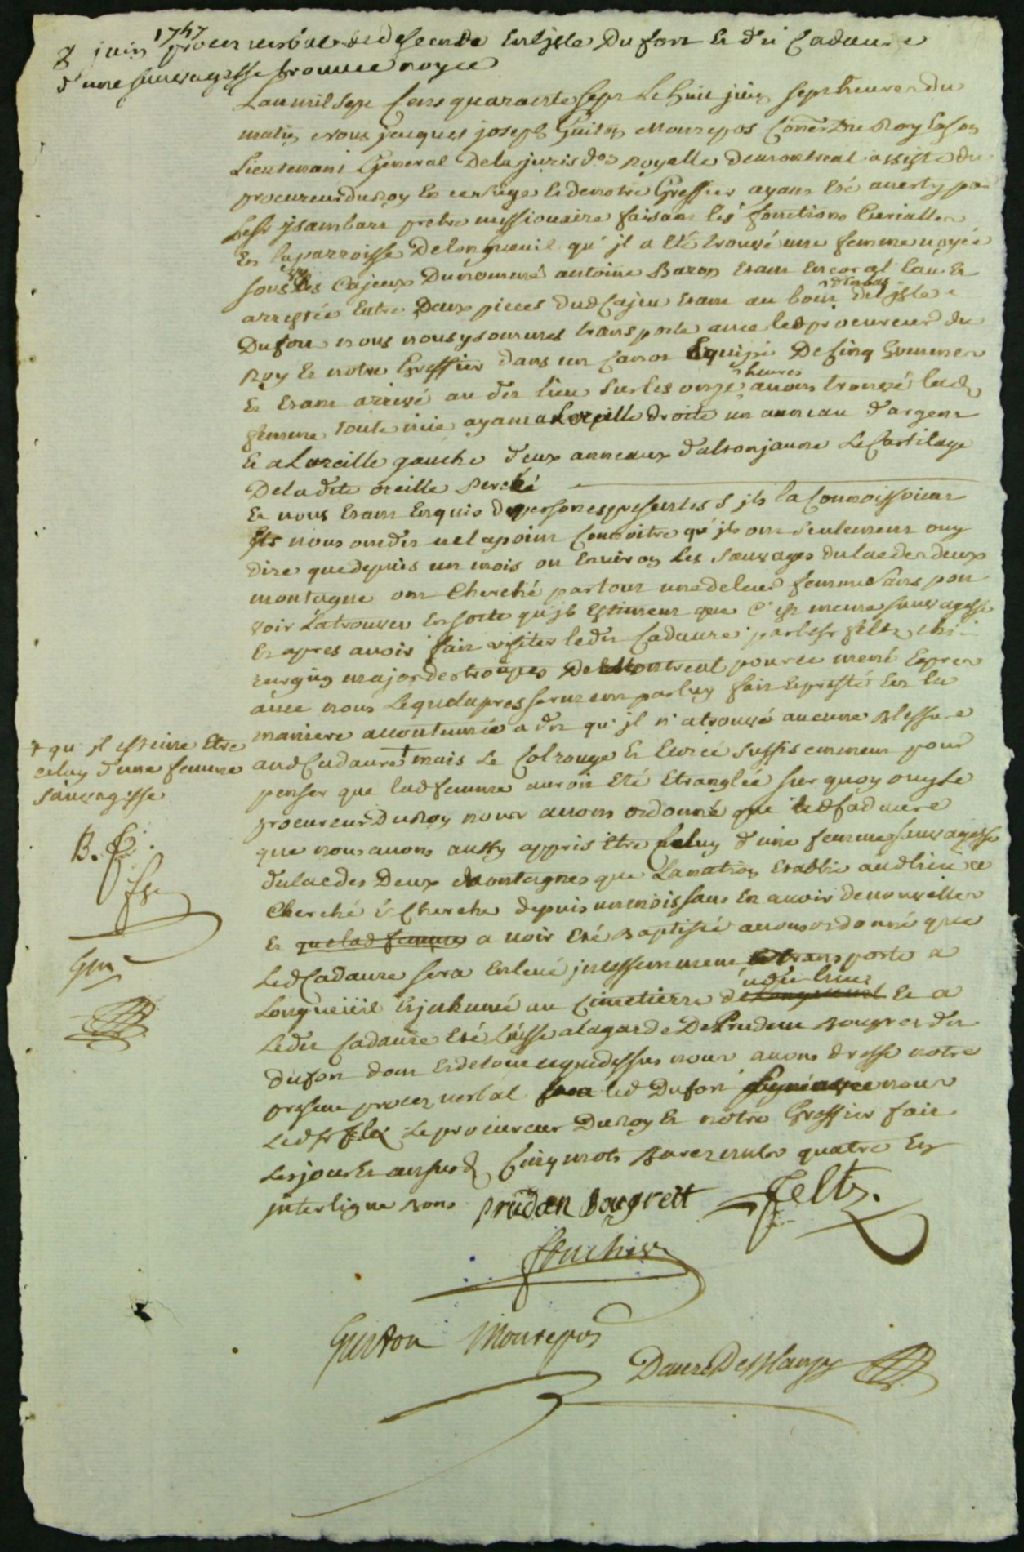 8 juin 1747 procez verbal de descende en lisle Dufort et du Cadavre
d'une sauvagesse trouvée noyée
L'an mil sept Cens quarante sept le huit juin sept heures du
matin nous jacques joseph Guiton Monrepos Coner Du Roy et son
Lieutenant General De la jurison Royalle de montreal assisté du
procureur du Roy en ce siège et de notre Greffier ayant été averty par
Le Sr ysambart pretre missionnaire faisant les fonctions Curialles
En la parroisse De longueuil qu'jl a été trouvé une femme noyée
sous les Cajeux Du nommé antoine Bazon Etant encor al'eau et
arrestée Entre Deux pieces dud Cajeu Etant au bout d'enbas de l'isle
Dufort nous nous y sommes transporté avec led procureur du
Roy Et notre Greffier dans un Canot Equipé De Cinq hommes
Et Etant arrivé au dit lieu sur les onze heures avons trouvé lad
femme toute nüe ayant a Loreille droite un anneau d'argent
Et a Loreille gauche deux anneaux d'alton jaune Le Cartilage
De la dite oreille percé
Et nous Etant Enquis des personnes presentes s'jls la Connoissoient
Ils nous ont dit ne la point Connoitre qu'jls ont seulement ouy
dire que depuis un mois ou Environ les sauvages du lac des deux
montagne ont Cherché partout une de leur femme sans pou
voir la trouver En sorte qu'jls Estiment que C'est meme sauvagesse
Et apres avoir fait visiter le dit Cadavre par le Sr feltz chi
rurgien major des troupes De Montreal pour ce mené Expres
avec nous Lequel apres serment par luy fait Et presté En la
maniere accoutumée a dit qu'jl n'a trouvé aucune Blessure
aud Cadavre + mais le Col rouge Et livide suffisemment pour
penser que lad femme auroit Eté Etranglée sur quoy ouy le
procureur Du Roy nous avons ordonné que led Cadavre
que nous avons aussy appris Etre Celuy d'une femme sauvagesse
du lac des Deux Montagnes que la nation Etablie aud lieu a
Cherché & Cherche depuis un mois sans En avoir de nouvelles
Et que lad femme avoir Eté Baptisée avons ordonné que
Led Cadavre sera Enlevé jncessamment Et transporté a
Longueüil Et jnhumé au Cimetierre de Longueuil dudit lieu Et a
Ledit Cadavre Eté Laissé a la garde De Prudent Bougret dit
dufort dont Et de tout ce que dessus nous avons dressé notre
present procez verbal led Dufort signé avec nous
Led Sr feltz Le procureur Du Roy Et notre Greffier fait
Les jour Et an susd Cinq mots Rayez nuls quatre En
jnterligne Bons
+ qu'jl estime Etre
celuy d'une femme
sauvagesse
B. f.
fz
Gm
prudan Bougrett
Feltz.
ffouchis
Guiton Monrepos
Danré Deblanzy